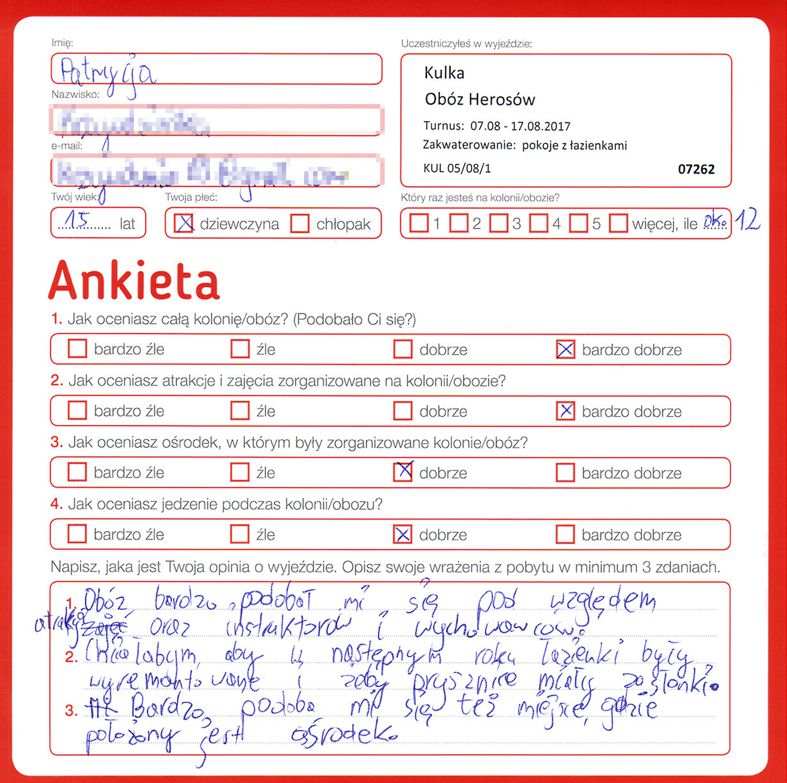 Imię:
Patrycja
Nazwisko:
e-mail:
Twój wiek:
15 lat
Twoja płeć:
dziewczyna chłopak
Uczestniczyłeś w wyjeździe:
Kulka
Obóz Herosów
Turnus: 07.08 - 17.08.2017
Zakwaterowanie: pokoje z łazienkami
KUL 05/08/1 07262
Który raz jesteś na kolonii/obozie?
1 2 3 4 5 więcej, ile oko. 12
Ankieta
1. Jak oceniasz całą kolonię/obóz? (Podobało Ci się?)
bardzo źle źle dobrze bardzo dobrze
2. Jak oceniasz atrakcje i zajęcia zorganizowane na kolonii/obozie?
bardzo źle źle dobrze bardzo dobrze
3. Jak oceniasz ośrodek, w którym były zorganizowane kolonie/obóz?
bardzo źle źle dobrze bardzo dobrze
4. Jak oceniasz jedzenie podczas kolonii/obozu?
bardzo źle źle dobrze bardzo dobrze
Napisz, jaka jest Twoja opinia o wyjeździe. Opisz swoje wrażenia z pobytu w minimum 3 zdaniach.
1. Obóz bardzo podobał mi się pod względem
atrakcji oraz instruktorów i wychowawców.
2. Chciałabym, aby w następnym roku łazienki były
wyremontowane i żeby prysznice miały zasłonki.
3. Bardzo podoba mi się też miejsce, gdzie
położony jest ośrodek.